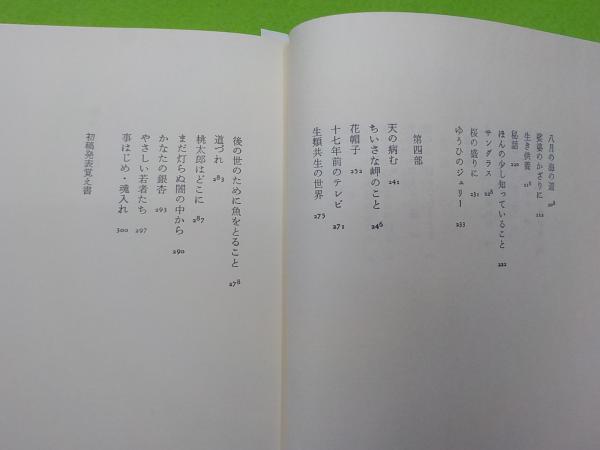 八月の海の道 208
袈裟のかざりに 212
生き供養 218
秘話 220
ほんの少し知っていること 222
サングラス 228
桜の盛りに 231
ゆうひのジュリー 233
第四部
天の病む 242
ちいさな岬のこと 246
花帽子 252
十七年前のテレビ 271
生類共生の世界 275
後の世のために魚をとること 278
道づれ 283
桃太郎はどこに 287
まだ灯らぬ闇の中から 290
かなたの銀杏 293
やさしい若者たち 297
事はじめ・魂入れ 300
初稿発表覚え書